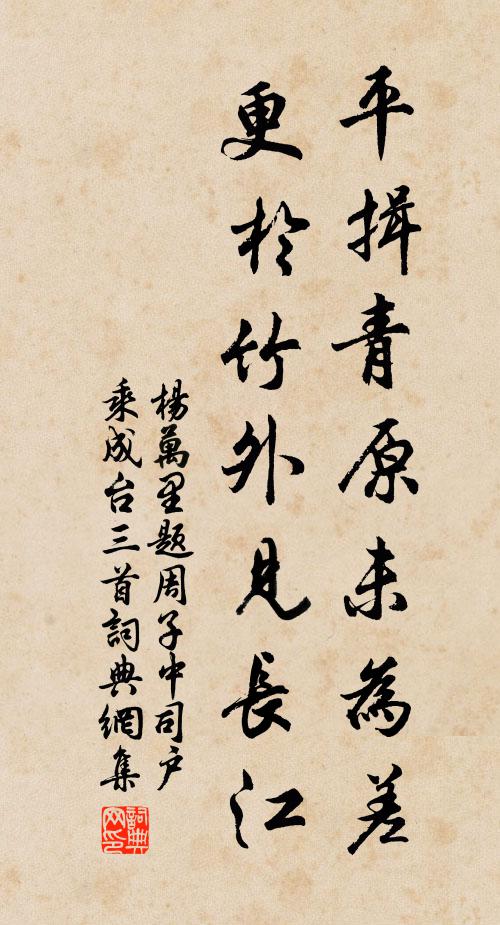 平揖青原未為差
更於竹外見長江
楊萬里題周子中司户
乘成台三首詞典網集
詞典网印